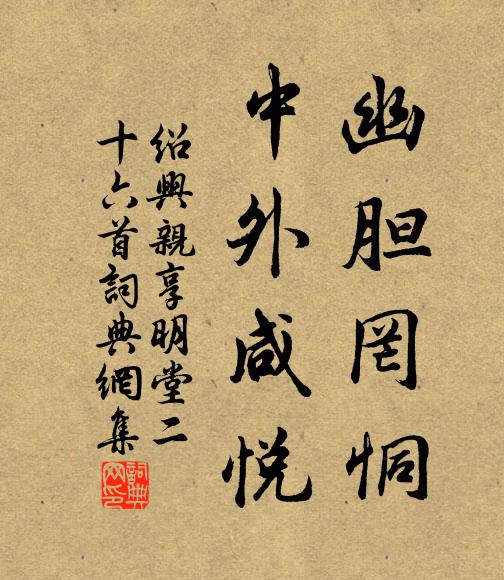 幽胆罔恫
中外咸悦
绍興親享明堂二
十六首詞典網集
詞典网印